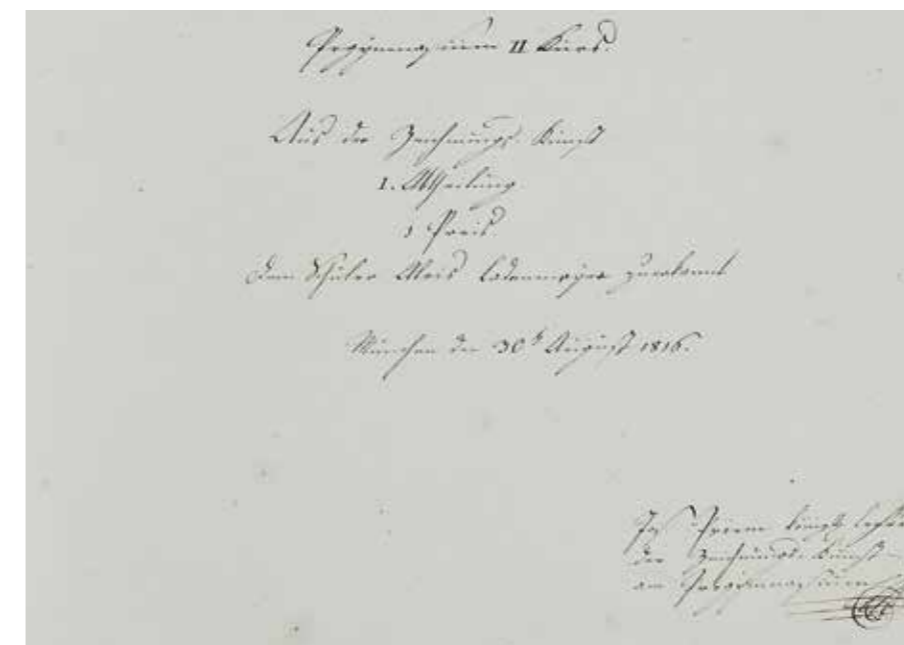 Progymnasium II Kurs.
Aus der Zeichnungs-Kunst
1. Abtheilung
1 Preis
dem Schüler Alois Lodenmayer zuerkannt
München den 30t August 1816.
Jos Priem
der Zeichnungs-Kunst
am Progymnasium